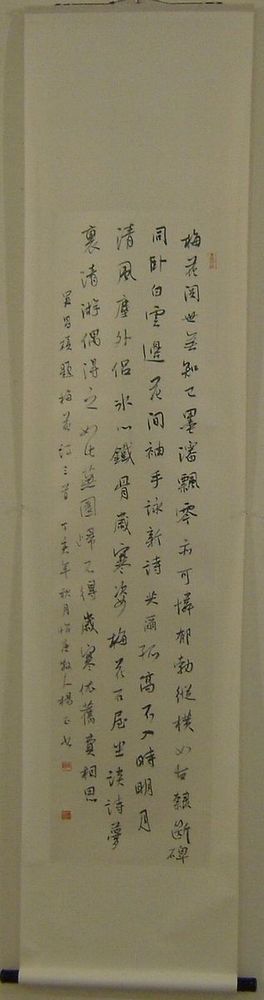 梅花閱世無知己墨瀋飄零亦可憐郁勃縱橫如古隸斷碑
同臥白雲邊花間袖手詠新詩共爾孤高不入時明月
清風塵外侶冰心鐵骨歲寒姿梅花石屋坐談詩夢
裏清游偶得之如此蕪園歸不得歲寒依舊賣相思
吳昌碩題梅花詩三首 丁亥年秋月 牧人楊